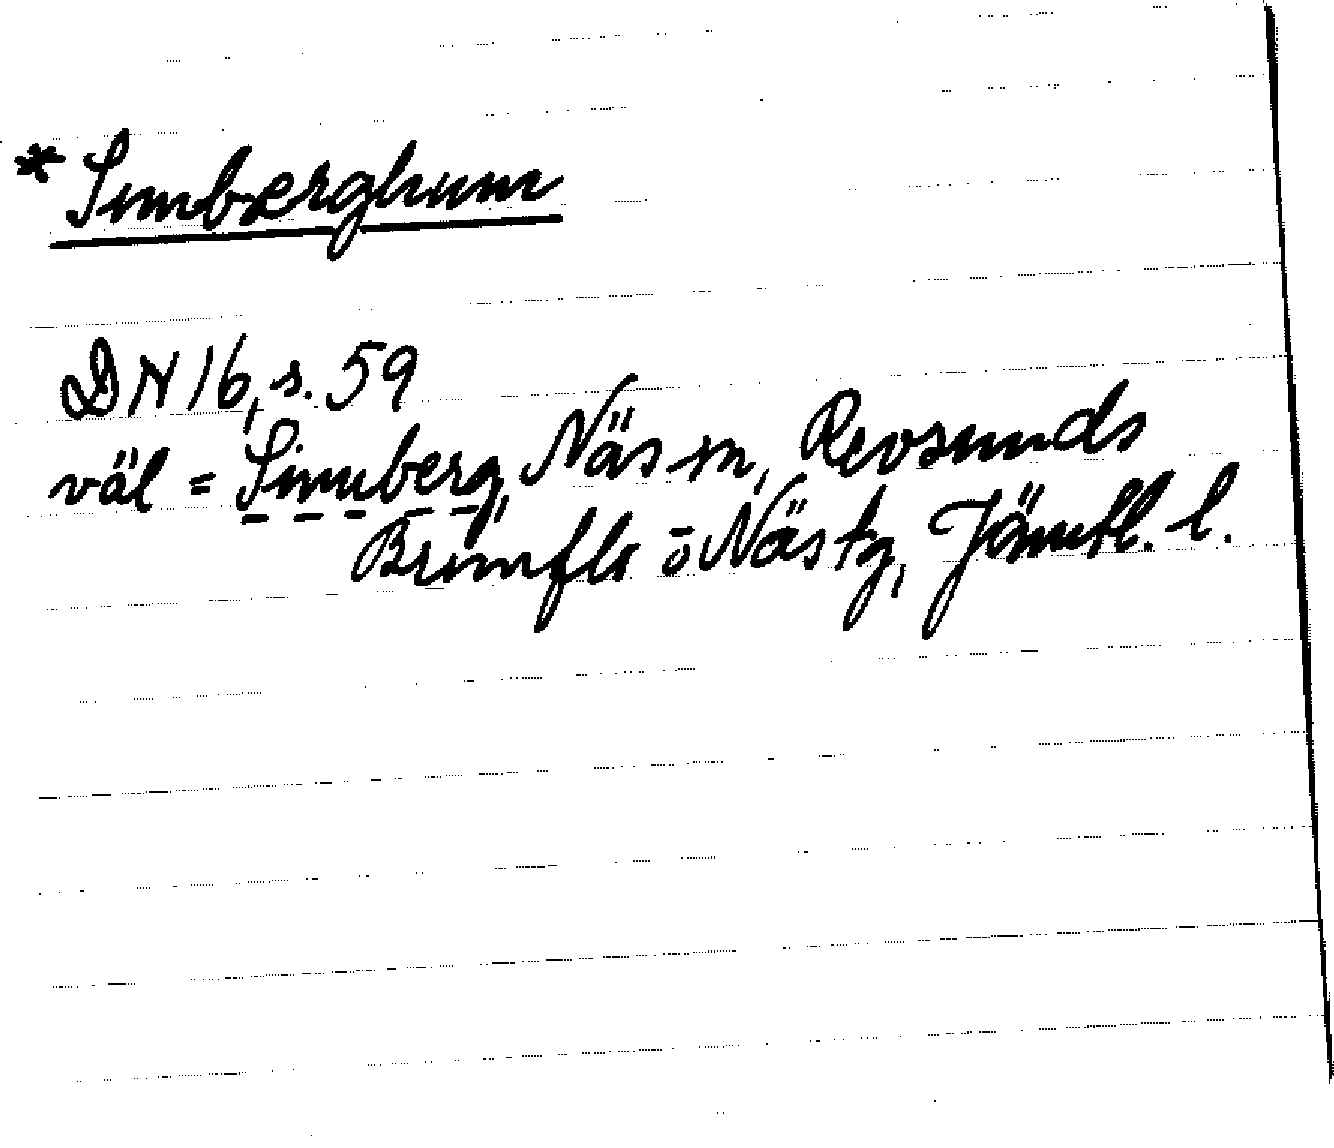 * Simbærghum
DN 16, s. 59
väl = Sinnberg, Näs sn, Revsunds
Brunflo o Näs tg, Jämtl. l.